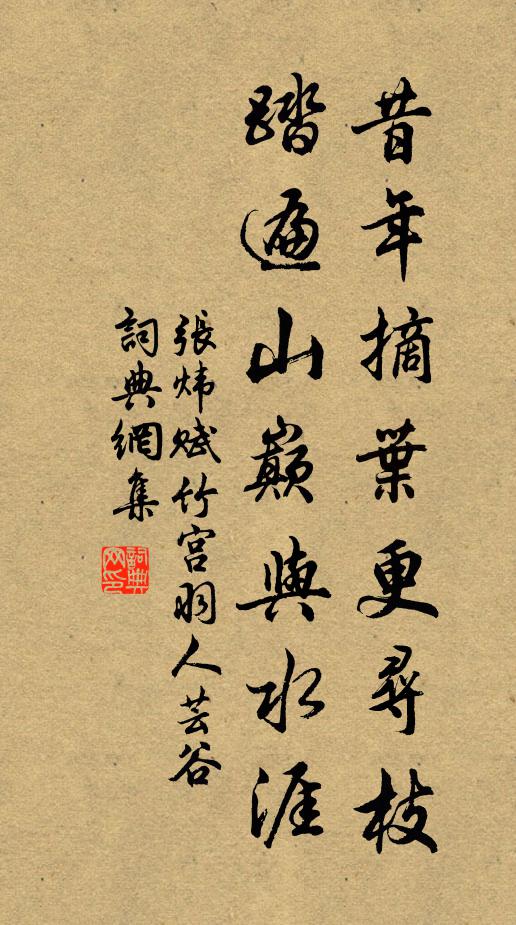 昔年摘葉更尋枝
踏遍山巔與水涯
張煒賦竹宮羽人芸谷
詞典網集
詞典網印